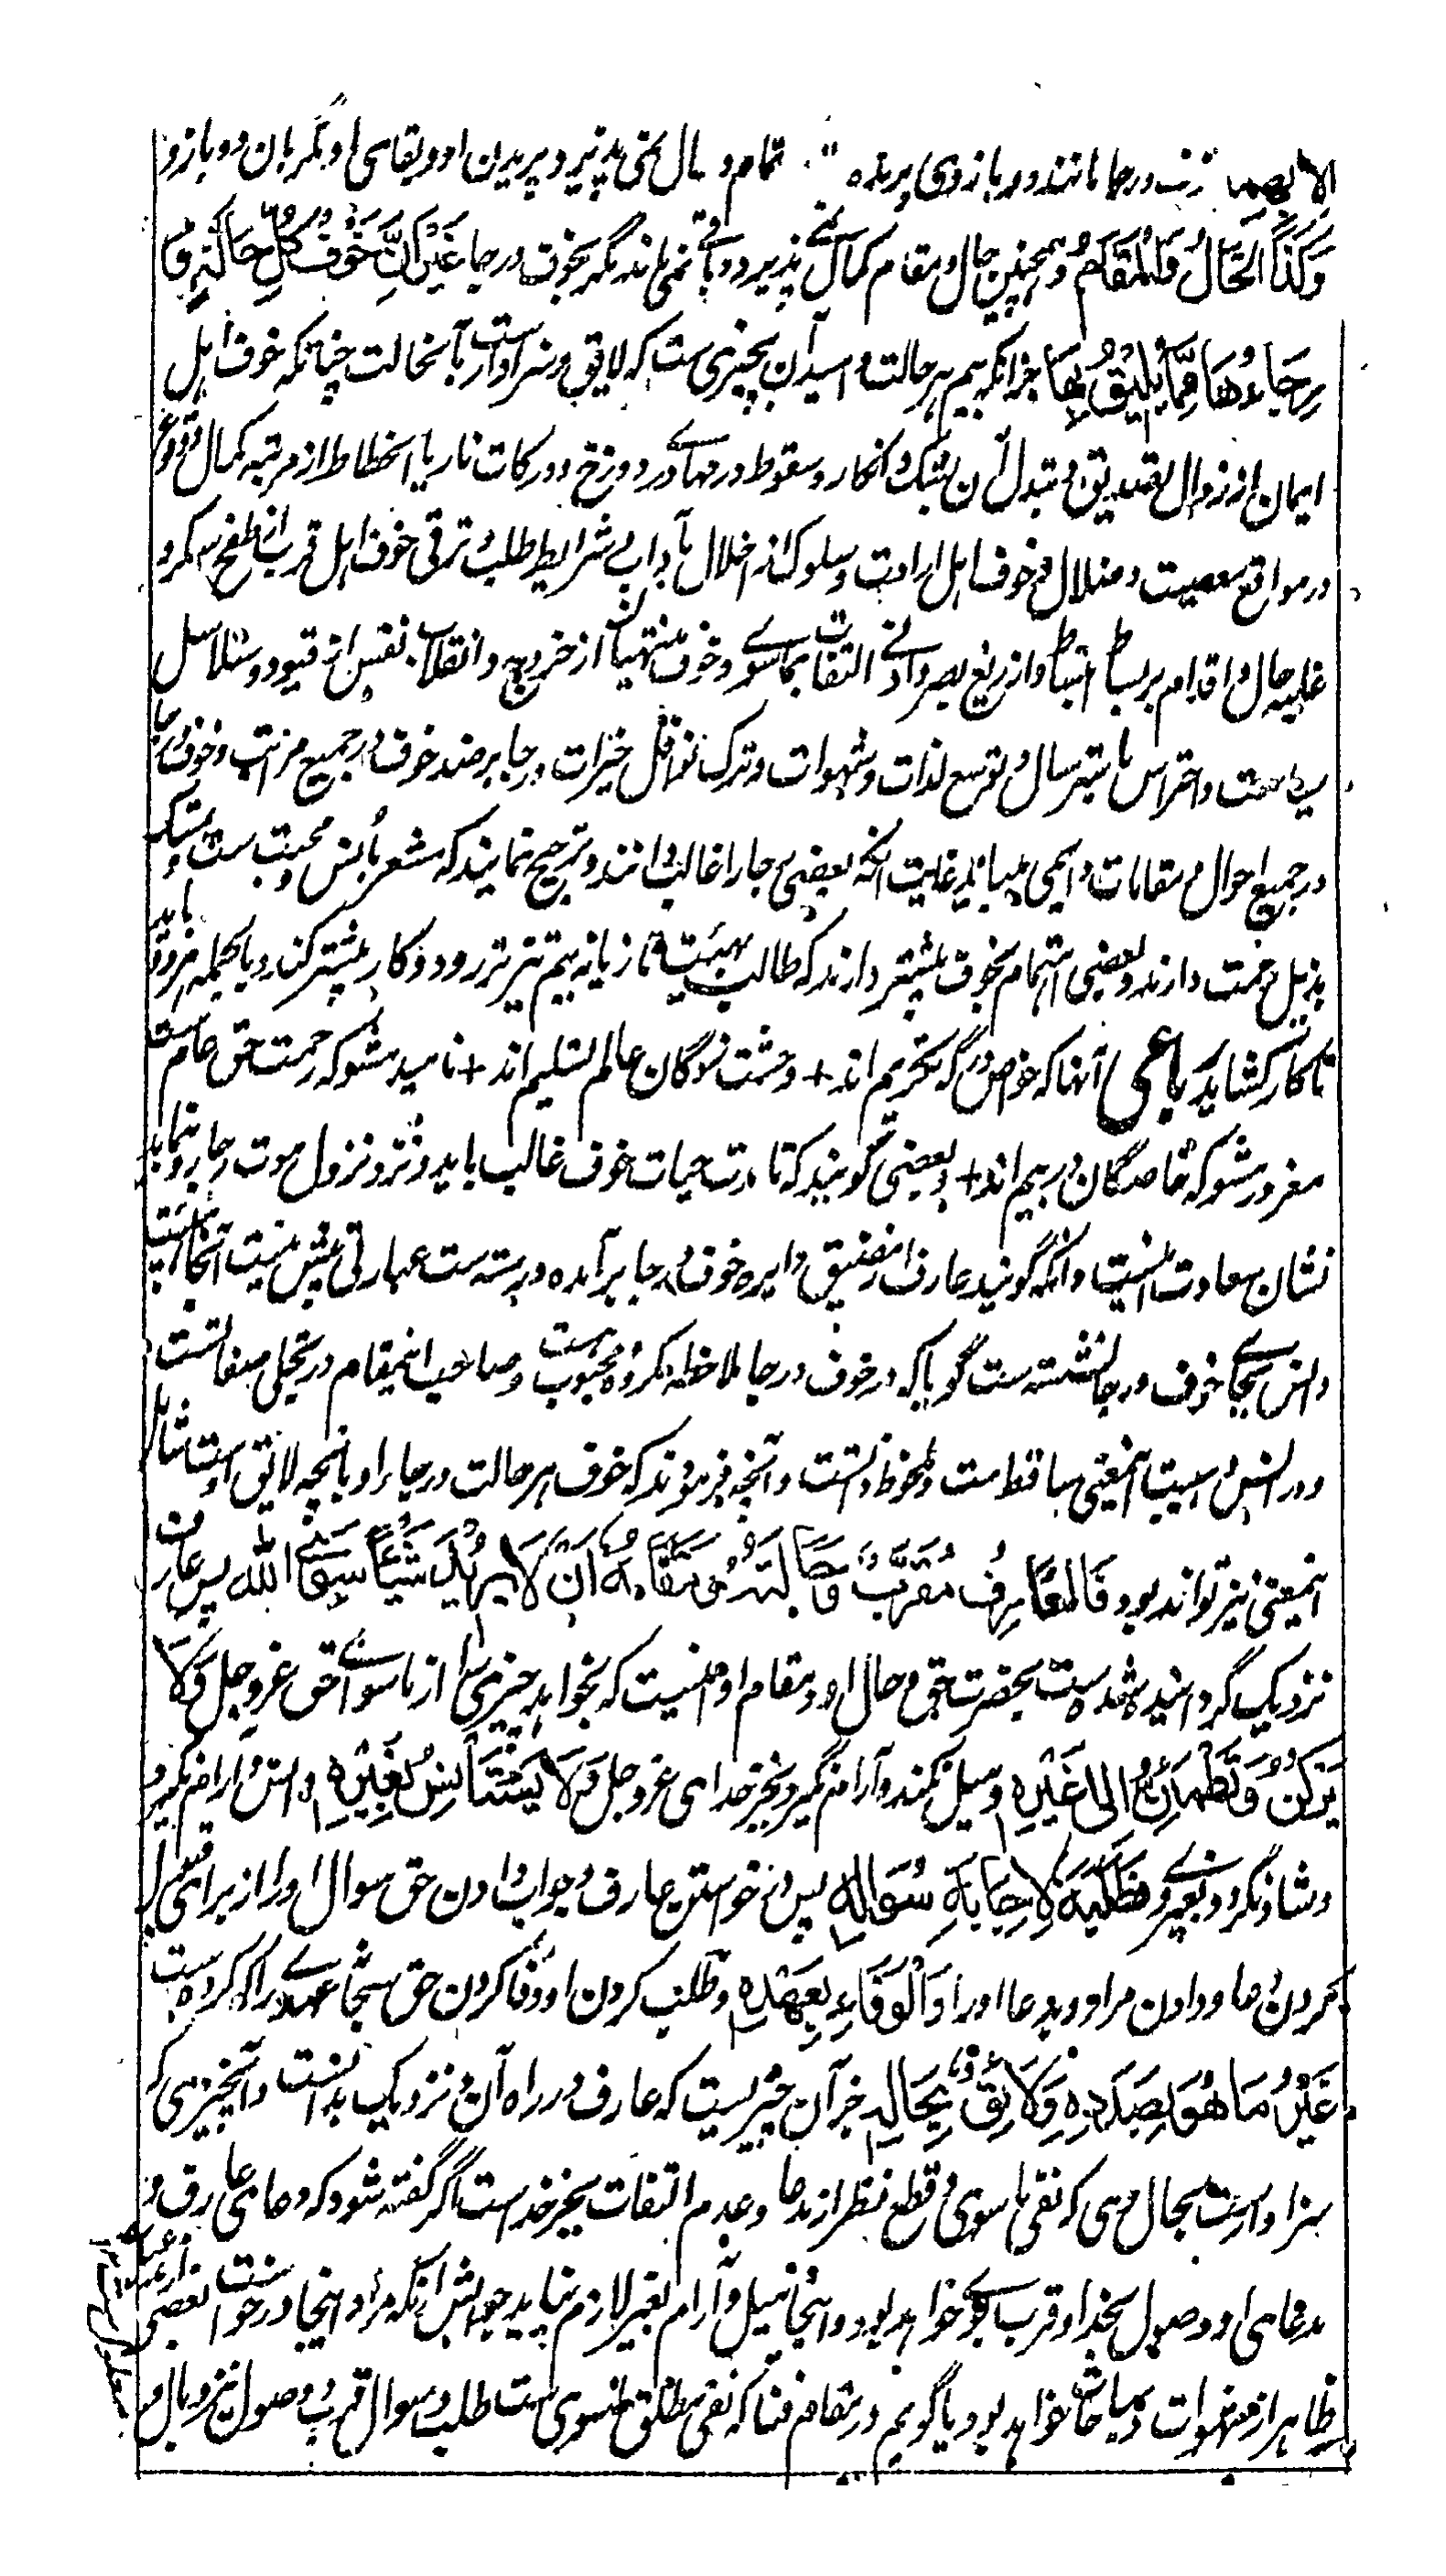 الا بهما خوف و رجا مانند دو بازوی پرنده تمام و کمال نمی پذیرد پریدن او و بقای او مگر بآن دو بازو
وَكَذَا الْحَالُ وَالْمَقَامُ و همچنین حال و مقام کمال نمی پذیرد و باقی نمی ماند مگر بخوف و رجا غَيْرَ اَنَّ خَوْفَ كُلِّ حَالَةٍ وَ
رَجَاءُهَا مِمَّا يَلِيْقُ بِهَا جز آنکه بیم هر حالت و امید آن بچیزی ست که لایق و سزاوار ست بآنحالت چنانکه خوف اهل
ایمان از زوال تصدیق و تبدل آن بشک و انکار و سقوط در مهاوی دوزخ و درکات نار یا انحطاط از مرتبه کمال و وقوع
در مواقع معصیت و ضلال و خوف اهل ارادت و سلوک از اخلال بآداب و شرایط طلب و ترقی خوف اهل قرب از طفح سکر و
غلبه حال و اقدام بر بساط انبساط و از زیغ بصر و ادنی التفات بماسوی و خوف منتهیان از خروج و انفلات نفس از قیود و سلاسل
سیاست و احتراس باسترسال و توسع لذات و شهوات و ترک نوافل خیرات و رجا بر ضد خوف در جمیع مراتب و خوف و رجا
در جمیع احوال و مقامات دایمی میباید غایت آنکه بعضی رجا را غالب دانند و ترجیح نمایند که مشعر بانس و محبت ست و تمسک
بذیل رحمت دارند و بعضی اهتمام بخوف بیشتر دارند که طالب بهیبت تازیانه بیم تیزتر رود و کار بیشتر کند و بالجمله هر دو باید
تا کار کشاید رباعی آنها که خواص درگه تکریم اند + وحشت زدگان عالم تسلیم اند + نامید مشو که رحمت حق عام ست
مغرور مشو که خاصگان در بیم اند + و بعضی گویند که تا مدت حیات خوف غالب باید و نزد نزول موت رجا رو نماید
نشان سعادت اینست و آنکه گویند عارف از مضیق دایره خوف و رجا برآمده و رسته ست عبارتی بیش نیست آنجا هیبت
و انس بجای خوف و رجا نشسته ست گویا که در خوف و رجا ملاحظه مکروه و محبوب ست و صاحب اینمقام در تجلی صفاتست
و در انس و هیبت اینمعنی ساقط ست و ملحوظ ذاتست و آنچه فرمودند که خوف هر حالت و رجاء او بآنچه لایق اوست شامل
اینمعنی نیز تواند بود فَالْعَارِفُ مُقَرَّبٌ وَحَالَتُهُ وَمَقَامُهُ اَنْ لَا يُرِيْدَ شَيْئًا سِوَى اللّٰهِ پس عارف
نزدیک گردانیده شده ست بحضرت حق و حال او و مقام او اینست که نخواهد چیزی را از ماسوای حق عز و جل وَلَا
يَرْكَنُ وَيَطْمَئِنُّ اِلٰى غَيْرِهِ و میل نکند و آرام نگیرد بجز خدای عز و جل وَلَا يَسْتَأْنِسُ بِغَيْرِهِ و انس و آرام نگیرد
و شاد نگردد بغیر وی فَطَلَبُهُ لِاِجَابَةِ سُوَالِهِ پس درخواستن عارف جواب دادن حق سوال او را از برای قبول
کردن دعا و دادن مراد و مدعا او را وَالْوَفَاءِ بِعَهْدِهِ و طلب کردن او وفا کردن حق سبحانه عهدی را که کرده ست
غَيْرُ مَا هُوَ بِصَدَدِهِ وَلَائِقٌ بِحَالِهِ جز آن چیزیست که عارف در راه آن و نزدیک بدانست و آنچیزی که
سزاوار ست بحال وی که نفی ماسوی و قطع نظر از مدعا و عدم التفات بجز خداست اگر گفته شود که دعای عارف و
مدعای او وصول بخدا و قرب او خواهد بود و اینجا میل و آرام بغیر لازم نیاید جوابش آنکه مراد اینجا درخواست بعضی
ظاهر از مشهوات و مباحات خواهد بود یا گوییم در مقام فنا که نفی مطلق ماسوی ست طلب و سوال قرب و وصول نیز وبال و